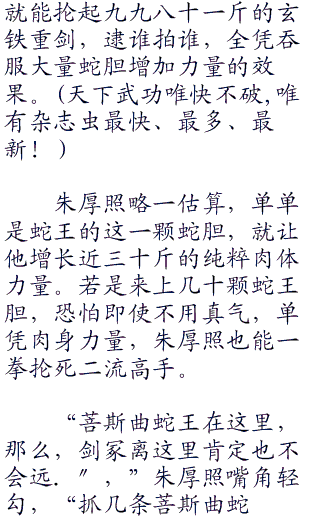 就能抡起九九八十一斤的玄
铁重剑，逮谁拍谁，全凭吞
服大量蛇胆增加力量的效
果。(天下武功唯快不破,唯
有杂志虫最快、最多、最
新！)
朱厚照略一估算，单单
是蛇王的这一颗蛇胆，就让
他增长近三十斤的纯粹肉体
力量。若是来上几十颗蛇王
胆，恐怕即使不用真气，单
凭肉身力量，朱厚照也能一
拳抡死二流高手。
“菩斯曲蛇王在这里，
那么，剑冢离这里肯定也不
会远．〃，”朱厚照嘴角轻
勾，“抓几条菩斯曲蛇